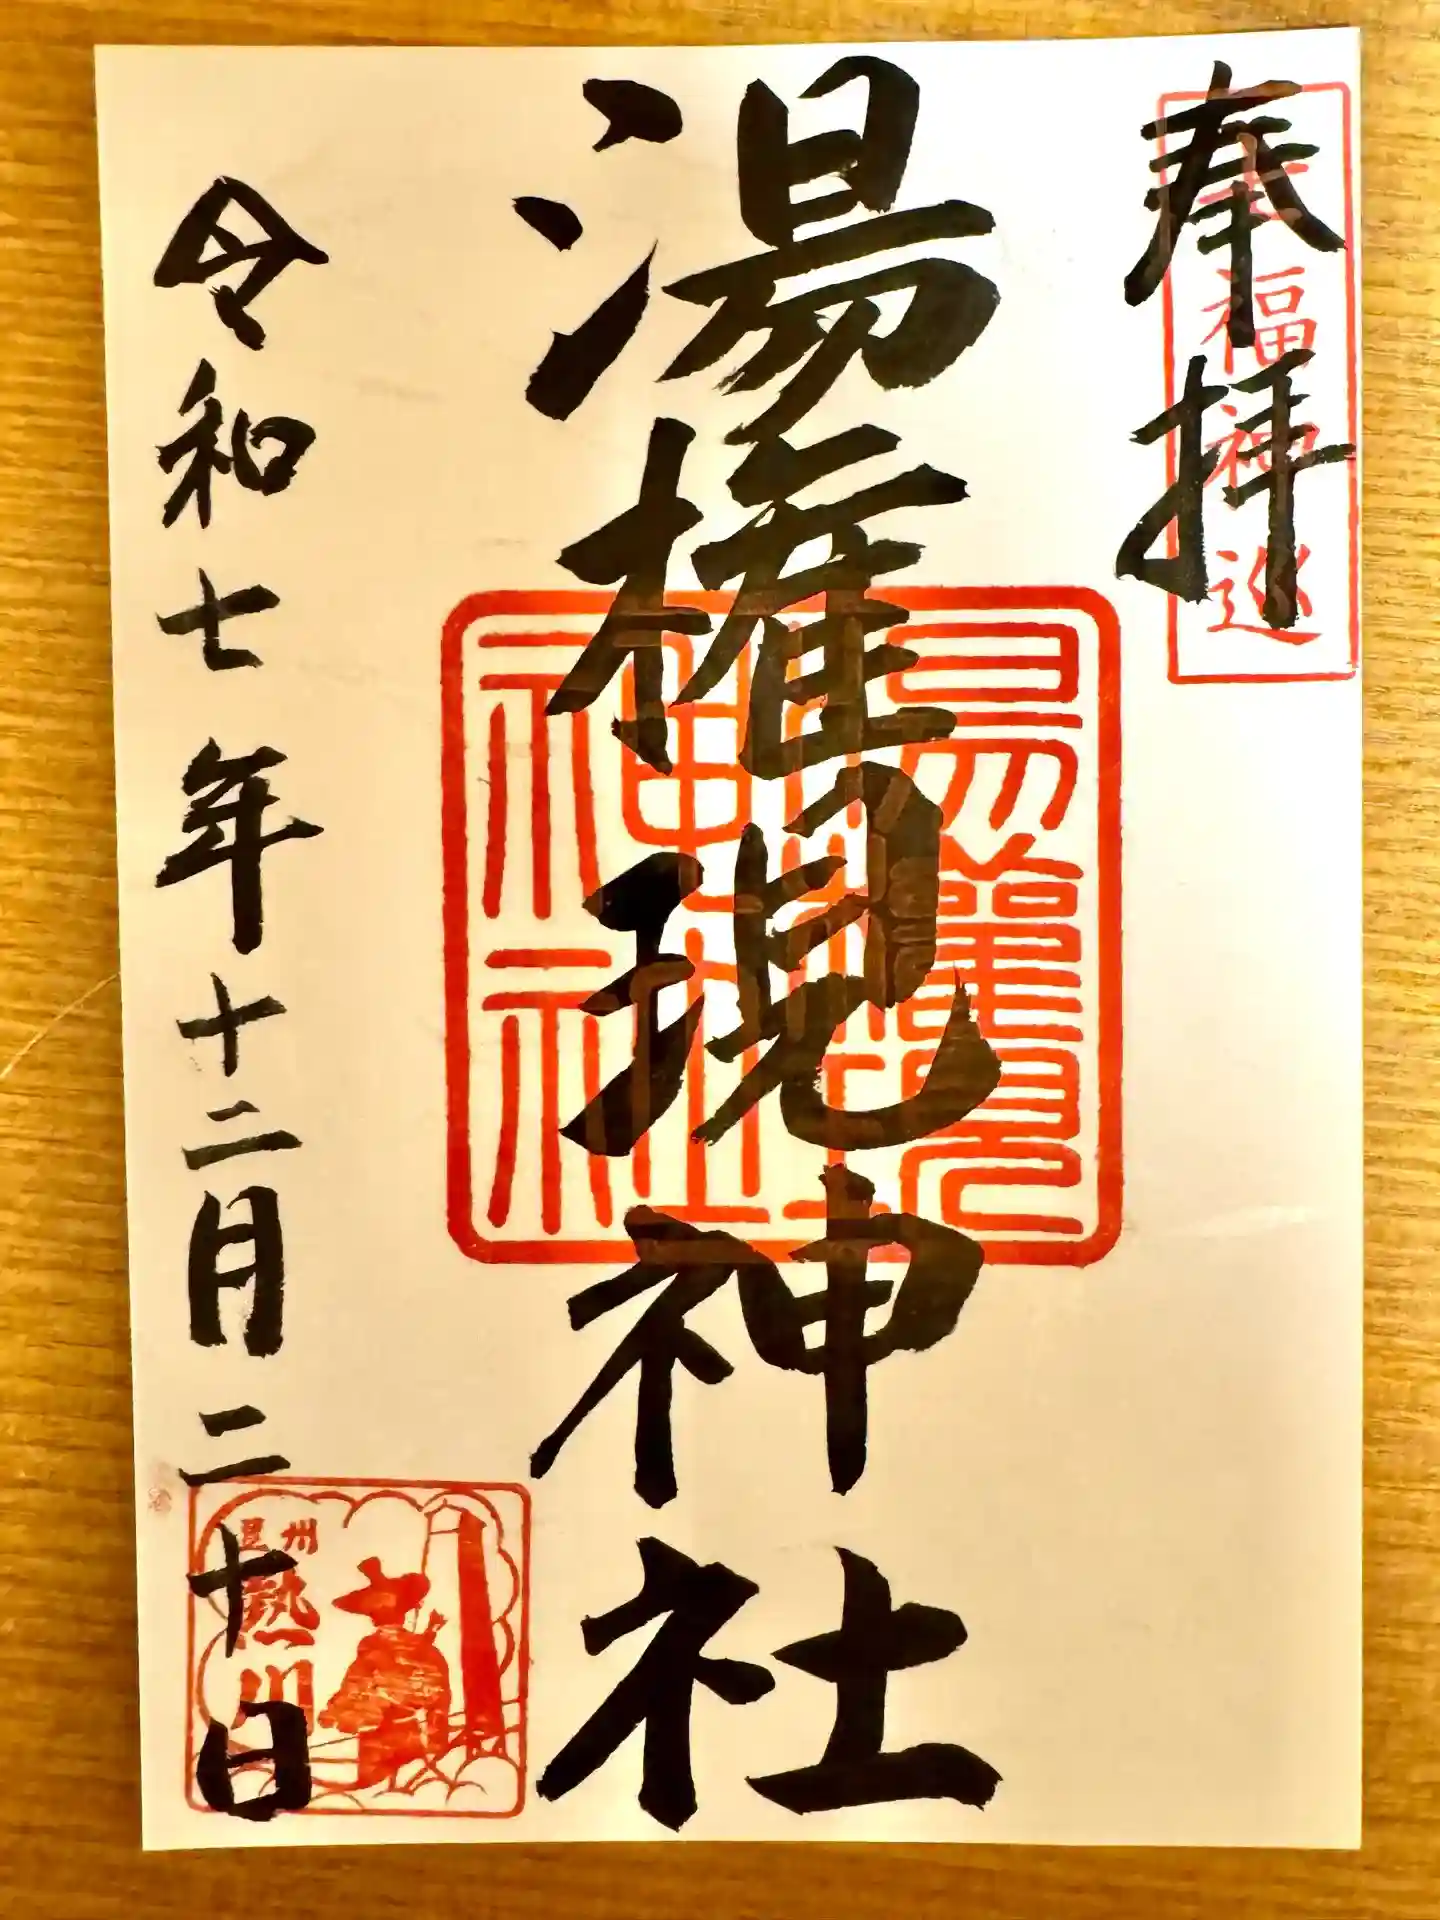 奉拝
福神巡
湯権現神社
湯権現神社
令和七年十二月二十日
豆州
熱川